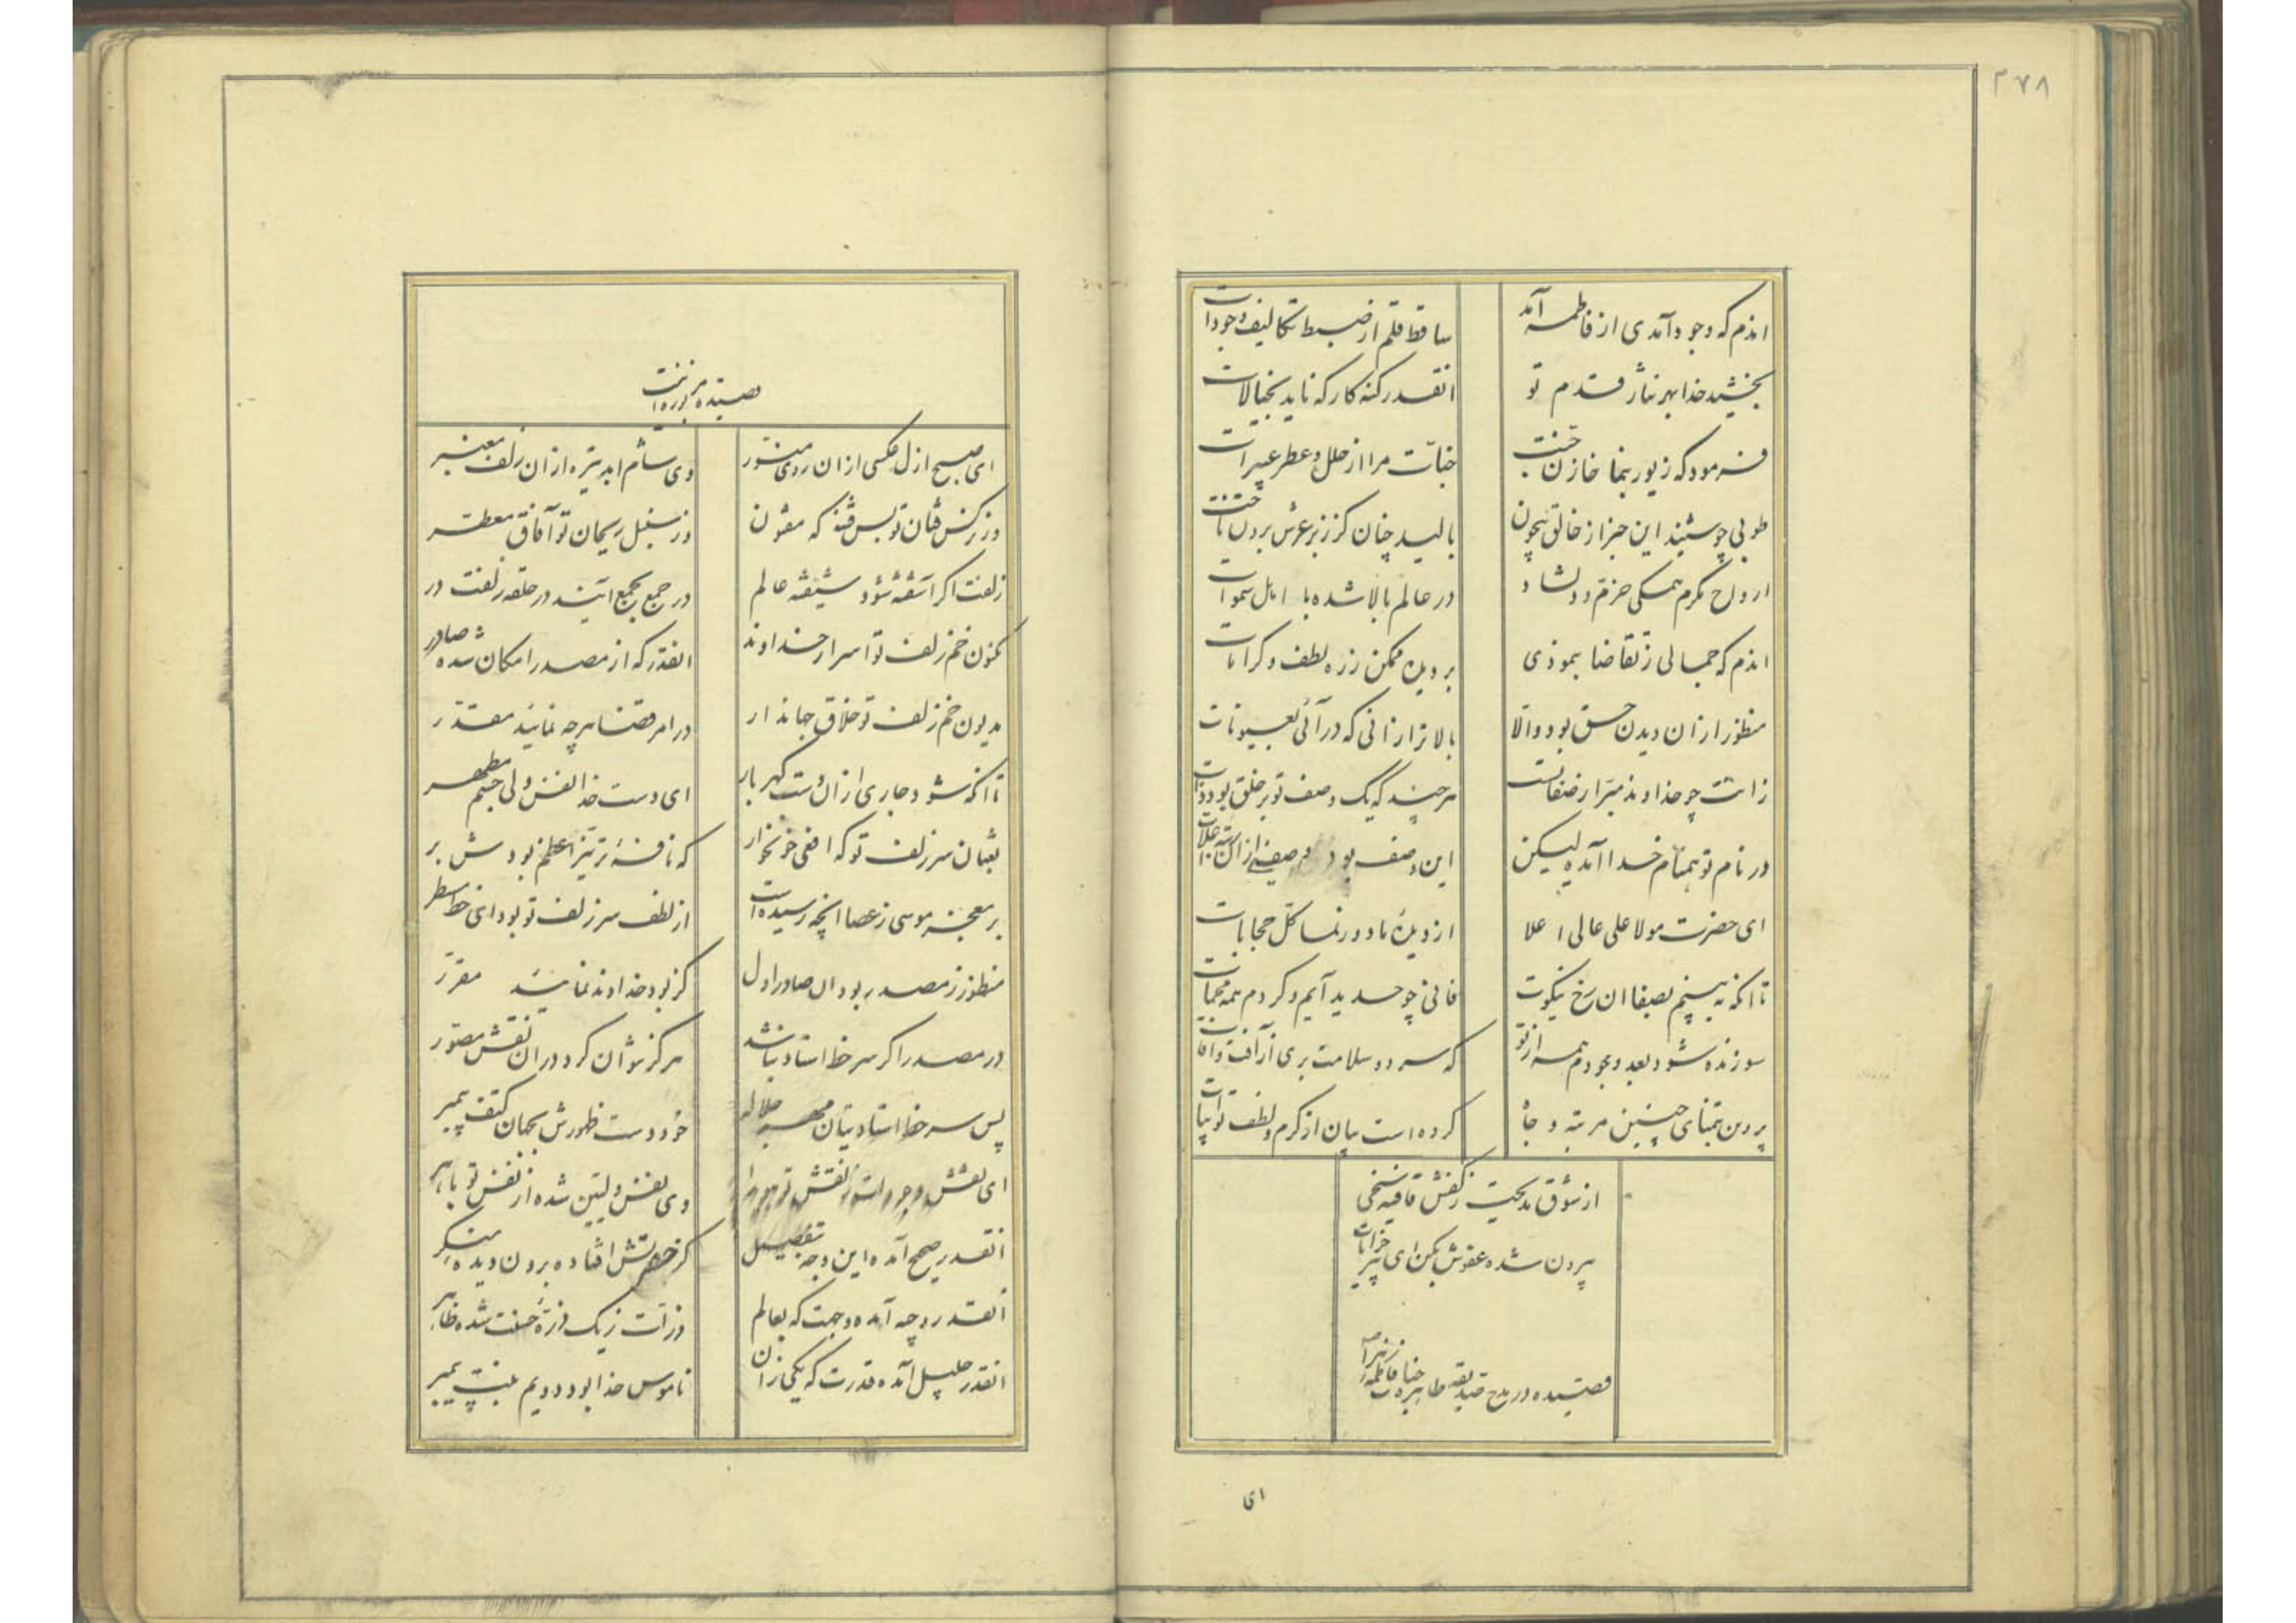 ۲۷۸
اندم که وجود آمدی از فاطمه آمد
ساقط قلم از ضبط تکالیف وجودات
بخشید خدا بهر نثار قدم تو
انقدر کنه کار که ناید بخیالات
فرمود که زیور بنما خازن جنت
جنات مرا از حلل و عطر عبیرات
طوبی چو شنید این خبر از خالق بیچون
بالید چنان کز زبر عرش برون
ارواح مکرم همکی خرم و دلشاد
در عالم بالا شده با اهل سموات
اندم که جمالی ز تقاضا بنمودی
بر دیده ممکن زره لطف و کرامات
منظور ازان دیدن حق بود والا
بالاتر ازانی که در آئی بعیونات
ذاتت چو خداوند مبرا ز صفاتست
هر چند که یک وصف تو بر خلق بود ذات
در نام تو همنام خدا آمده لیکن
این وصف بود
ای حضرت مولا علی عالی اعلا
از دیده ما دور نما کل حجابات
تا انکه به بینم بصفا ان رخ نیکوت
فانی چو حدید آیم و کردم همه
سوزنده شود بعد وجودم همه از تو
که سر ده و سلامت بری از آفت و آفات
پروین بتمنای چنین مرتبه و جاه
کرده است بیان از کرم و لطف تو ابیات
از شوق مدیحت ز کفش قافیه سنجی
بیرون شده عفوش بکن ای پیر خرابات
قصیده در مدح صدیقه طاهره جناب فاطمه زهرا
ای
قصیده
ای صبح ازل عکسی ازان روی منور
وی شام ابد تیره ازان زلف معنبر
وز نرکس فتان تو بس فتنه که مفتون
وز سنبل ریحان تو آفاق معطر
زلفت اکر آشفته شود شیفته عالم
در جمع بجمع آیند در حلقه زلفت در
مکنون خم زلف تو اسرار خداوند
انقدر که از مصدر امکان شده صادر
مدیون خم زلف تو خلاق جهاندار
در امر قضا هر چه نمایند مقدر
تا انکه شود جاری ازان دست کهربار
ای دست خدا لفس ولی جسم مطهر
ثعبان سر زلف تو که افعی خونخوار
بر معجزه موسی ز عصا انچه رسیده است
از لطف سر زلف تو بود ای خط اسطر
منظور ز مصدر بود ان صادر اول
کز بود خداوند نمایند مقرر
در مصدر اکر سر خط استاد نباشد
هرکز نتوان کرد دران نقش مصور
پس سر خط استاد بنان
خود دست ظهورش بجهان کتف پیمبر
ای نقش وجود
وی نفس ولیین شده از نفس تو باهر
انقدر صحیح آمده این وجه بتفصیل
کز حضرتش افتاده برون دیده منکر
انقدر وجه آمده وجهت که بعالم
ذرات ز یک ذره حسنت شده ظاهر
انقدر جلیل آمده قدرت که یکی زان
ناموس خدا بود و دویم بنت پیمبر